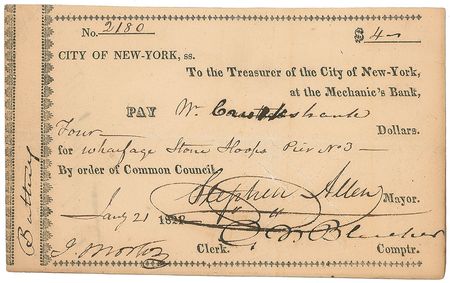 No. 2180 $4
CITY OF NEW-YORK, ss.
To the Treasurer of the City of New-York,
at the Mechanic's Bank,
PAY W. Cruikshank
Four Dollars.
for Wharfage Stone Sloops Pier No 3
By order of Common Council,
Stephen Allen Mayor.
Jany 21 182
J. Morton Clerk. Comptr.
Battery